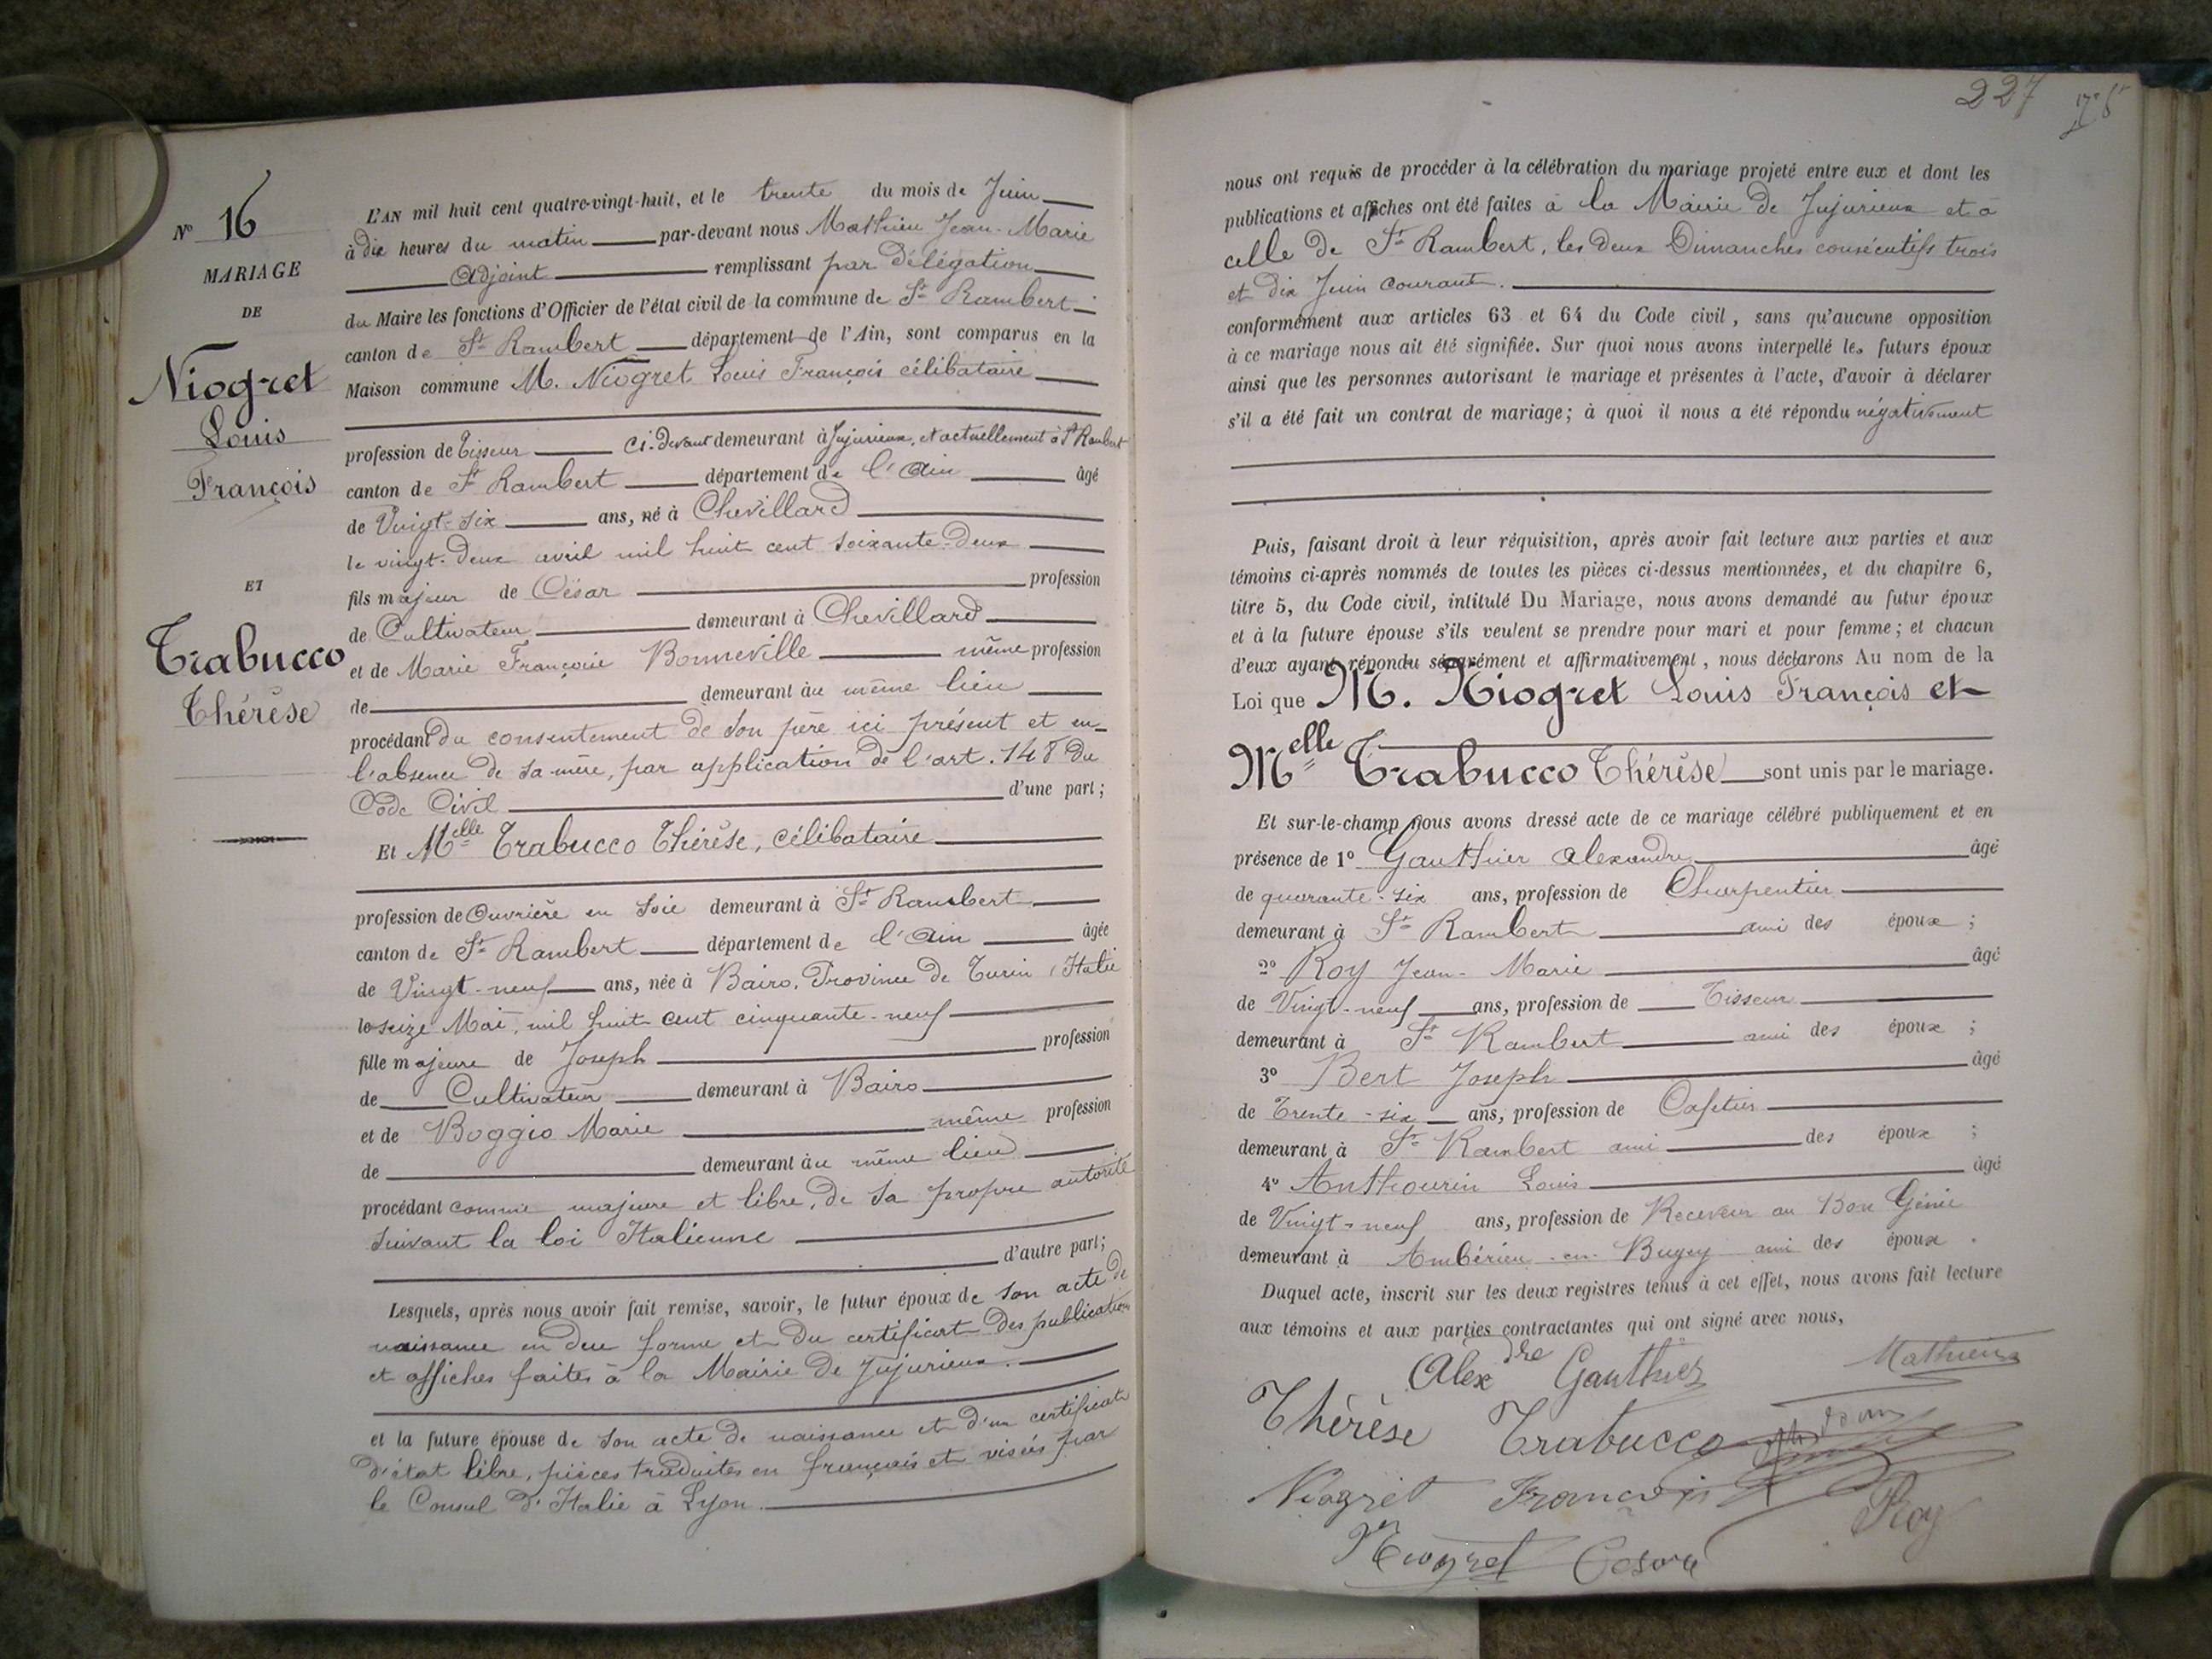 Nº 16
MARIAGE
DE
Niogret
Louis
François
ET
Trabucco
Thérèse
L'AN mil huit cent quatre-vingt-huit, et le trente du mois de Juin
à dix heures du matin par-devant nous Mathieu Jean-Marie
Adjoint remplissant par Délégation
du Maire les fonctions d'Officier de l'état civil de la commune de St Rambert
canton de St Rambert département de l'Ain, sont comparus en la
Maison commune M. Niogret Louis François célibataire
profession de Tisseur ci-devant demeurant à Jujurieux, et actuellement à St Rambert
canton de St Rambert département de l'Ain âgé
de Vingt-six ans, né à Chevillard
le vingt-deux avril mil huit cent soixante-deux
fils majeur de César profession
de Cultivateur demeurant à Chevillard
et de Marie Françoise Bonneville même profession
de demeurant au même lieu
procédant du consentement de son père ici présent et en
l'absence de sa mère, par application de l'art. 148 du
Code Civil d'une part;
Et Melle Trabucco Thérèse, célibataire
profession de Ouvrière en soie demeurant à St Rambert
canton de St Rambert département de l'Ain âgée
de Vingt-neuf ans, née à Bairo, Province de Turin, Italie
le seize Mai, mil huit cent cinquante-neuf
fille majeure de Joseph profession
de Cultivateur demeurant à Bairo
et de Boggio Marie même profession
de demeurant au même lieu
procédant comme majeure et libre, de sa propre autorité
suivant la loi Italienne
d'autre part;
Lesquels, après nous avoir fait remise, savoir, le futur époux de son acte de
naissance en due forme et du certificat des publications
et affiches faites à la Mairie de Jujurieux.
et la future épouse de son acte de naissance et d'un certificat
d'état libre, pièces traduites en français et visées par
le Consul d'Italie à Lyon.
227
nous ont requis de procéder à la célébration du mariage projeté entre eux et dont les
publications et affiches ont été faites à la Mairie de Jujurieux et à
celle de St Rambert, les deux Dimanches consécutifs trois
et dix Juin courant.
conformément aux articles 63 et 64 du Code civil, sans qu'aucune opposition
à ce mariage nous ait été signifiée. Sur quoi nous avons interpellé les futurs époux
ainsi que les personnes autorisant le mariage et présentes à l'acte, d'avoir à déclarer
s'il a été fait un contrat de mariage; à quoi il nous a été répondu négativement
Puis, faisant droit à leur réquisition, après avoir fait lecture aux parties et aux
témoins ci-après nommés de toutes les pièces ci-dessus mentionnées, et du chapitre 6,
titre 5, du Code civil, intitulé Du Mariage, nous avons demandé au futur époux
et à la future épouse s'ils veulent se prendre pour mari et pour femme; et chacun
d'eux ayant répondu séparément et affirmativement, nous déclarons Au nom de la
Loi que M. Niogret Louis François et
Melle Trabucco Thérèse sont unis par le mariage.
Et sur-le-champ nous avons dressé acte de ce mariage célébré publiquement et en
présence de 1º Gauthier Alexandre âgé
de quarante-six ans, profession de Charpentier
demeurant à St Rambert ami des époux ;
2º Roy Jean-Marie âgé
de Vingt-neuf ans, profession de Tisseur
demeurant à St Rambert ami des époux ;
3º Bert Joseph âgé
de Trente-six ans, profession de Cafetier
demeurant à St Rambert ami des époux ;
4º Anthourin Louis âgé
de Vingt-neuf ans, profession de Receveur au Bon Génie
demeurant à Ambérieu-en-Bugey ami des époux.
Duquel acte, inscrit sur les deux registres tenus à cet effet, nous avons fait lecture
aux témoins et aux parties contractantes qui ont signé avec nous,
Alexdre Gauthier Mathieu
Thérèse Trabucco
Niogret François
Roy
Niogret Cesare